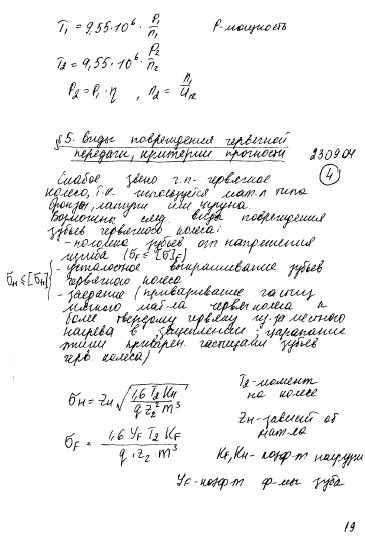 T₁ = 9,55·10⁶ · P₁/n₁ P-мощность
T₂ = 9,55·10⁶ · P₂/n₂
P₂ = P₁·η , n₂ = n₁/Uчп
§5. Виды повреждения червячной
передачи, критерии прочности 23.09.04
4
Слабое звено ч.п.- червячное
колесо, т.к. используется мат-л типа
бронзы, латуни или чугуна.
Возможны след. виды повреждения
зубьев червячного колеса:
- поломка зубьев от напряжения
изгиба (σF ≤ [σ]F)
σH ≤ [σH] { - усталостное выкрашивание зубьев
червячного колеса
- заедание (приваривание частиц
мягкого мат-ла червяч. колеса к
более твердому червяку из-за местного
нагрева в зацеплении, царапание
этими приварен. частицами зубьев
черв. колеса)
σH = ZH √(1,6 T₂ KH / q z₂² m³) T₂-момент
на колесе
ZH-зависит от
мат-ла
σF = 1,6 YF T₂ KF / q · z₂ · m³
KF, KH - коэф-т нагрузки
YF-коэф-т ф-мы зуба
19